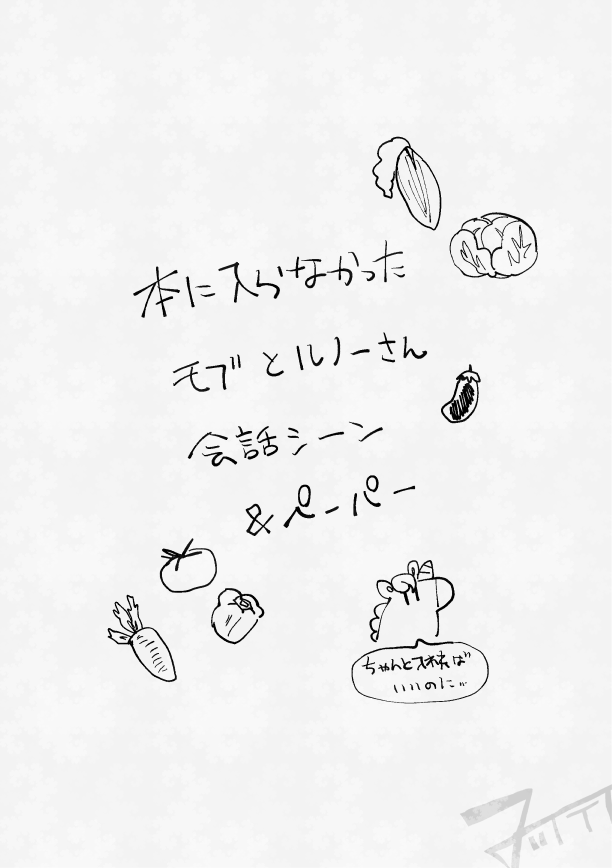 本に入らなかった
モブとルノーさん
会話シーン
&ペーパー
ちゃんと
いいのに…